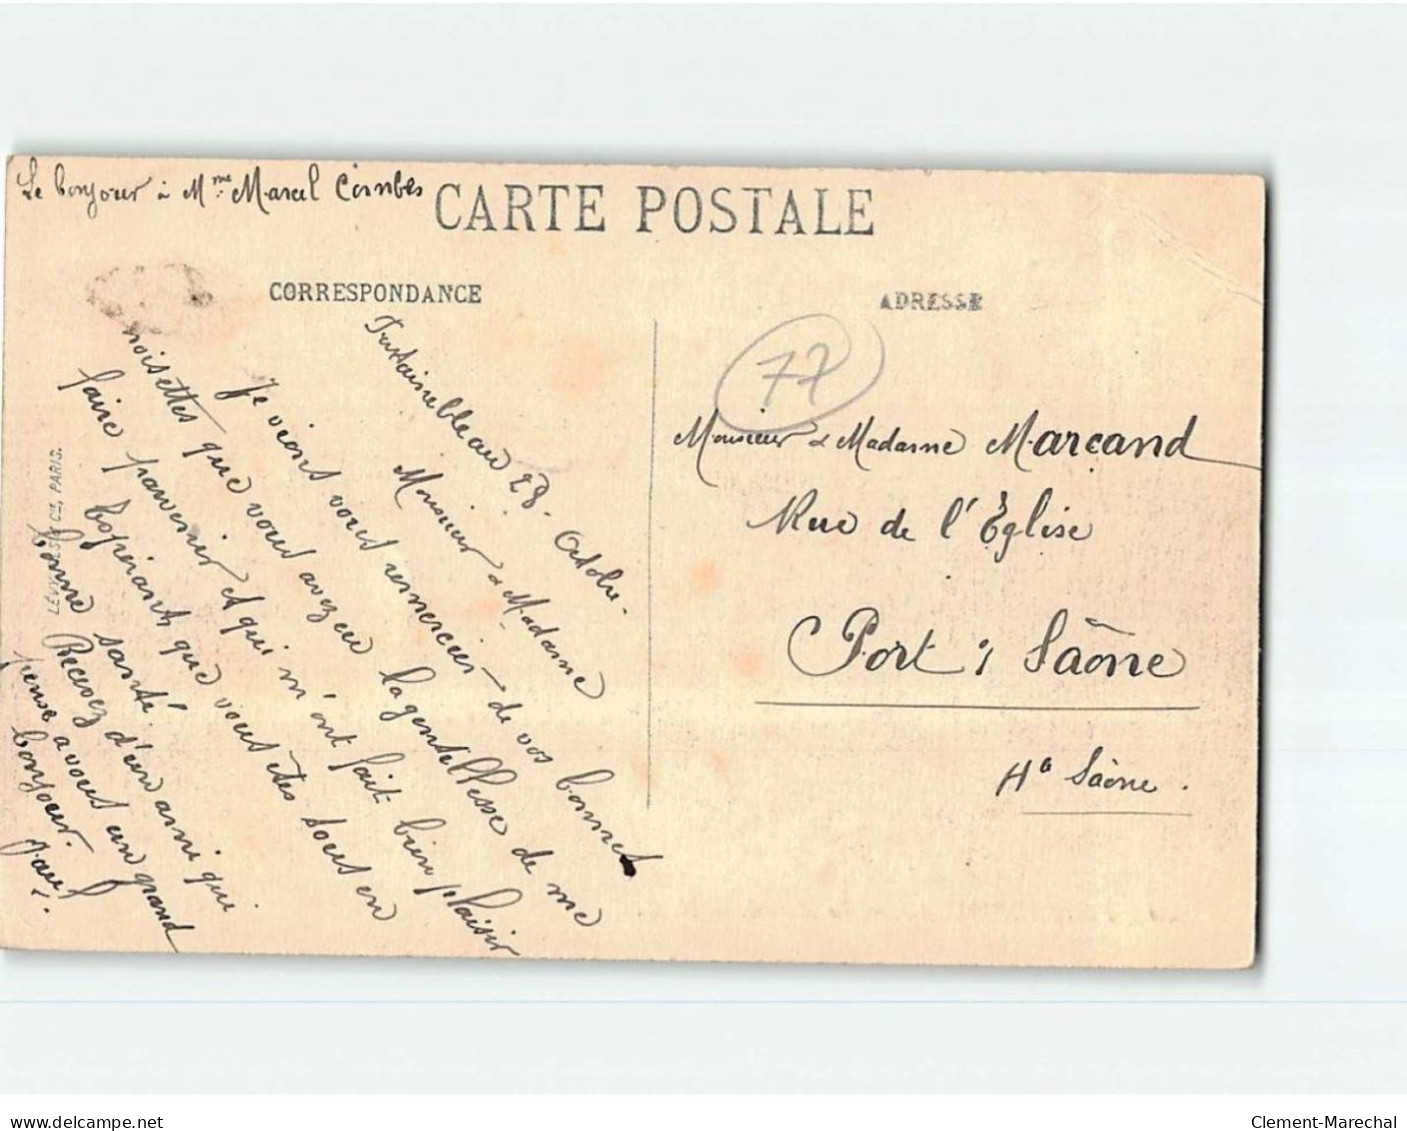 Le bonjour à Mme Marcel Combes
CARTE POSTALE
CORRESPONDANCE
ADRESSE
77
Fontainebleau 28 - Octobre -
Monsieur & Madame
Je viens vous remercier de vos bonnes
noisettes que vous avez eu la gentillesse de me
faire parvenir et qui m'ont fait bien plaisir
Espérant que vous êtes tous en
bonne santé.
Recevez d'un ami qui
pense a vous un grand
bonjour.
Paul
Monsieur & Madame Marcand
Rue de l'Eglise
Port s/ Saône
Hte Saône.
PARIS.
delcampe.net
Clement-Marechal